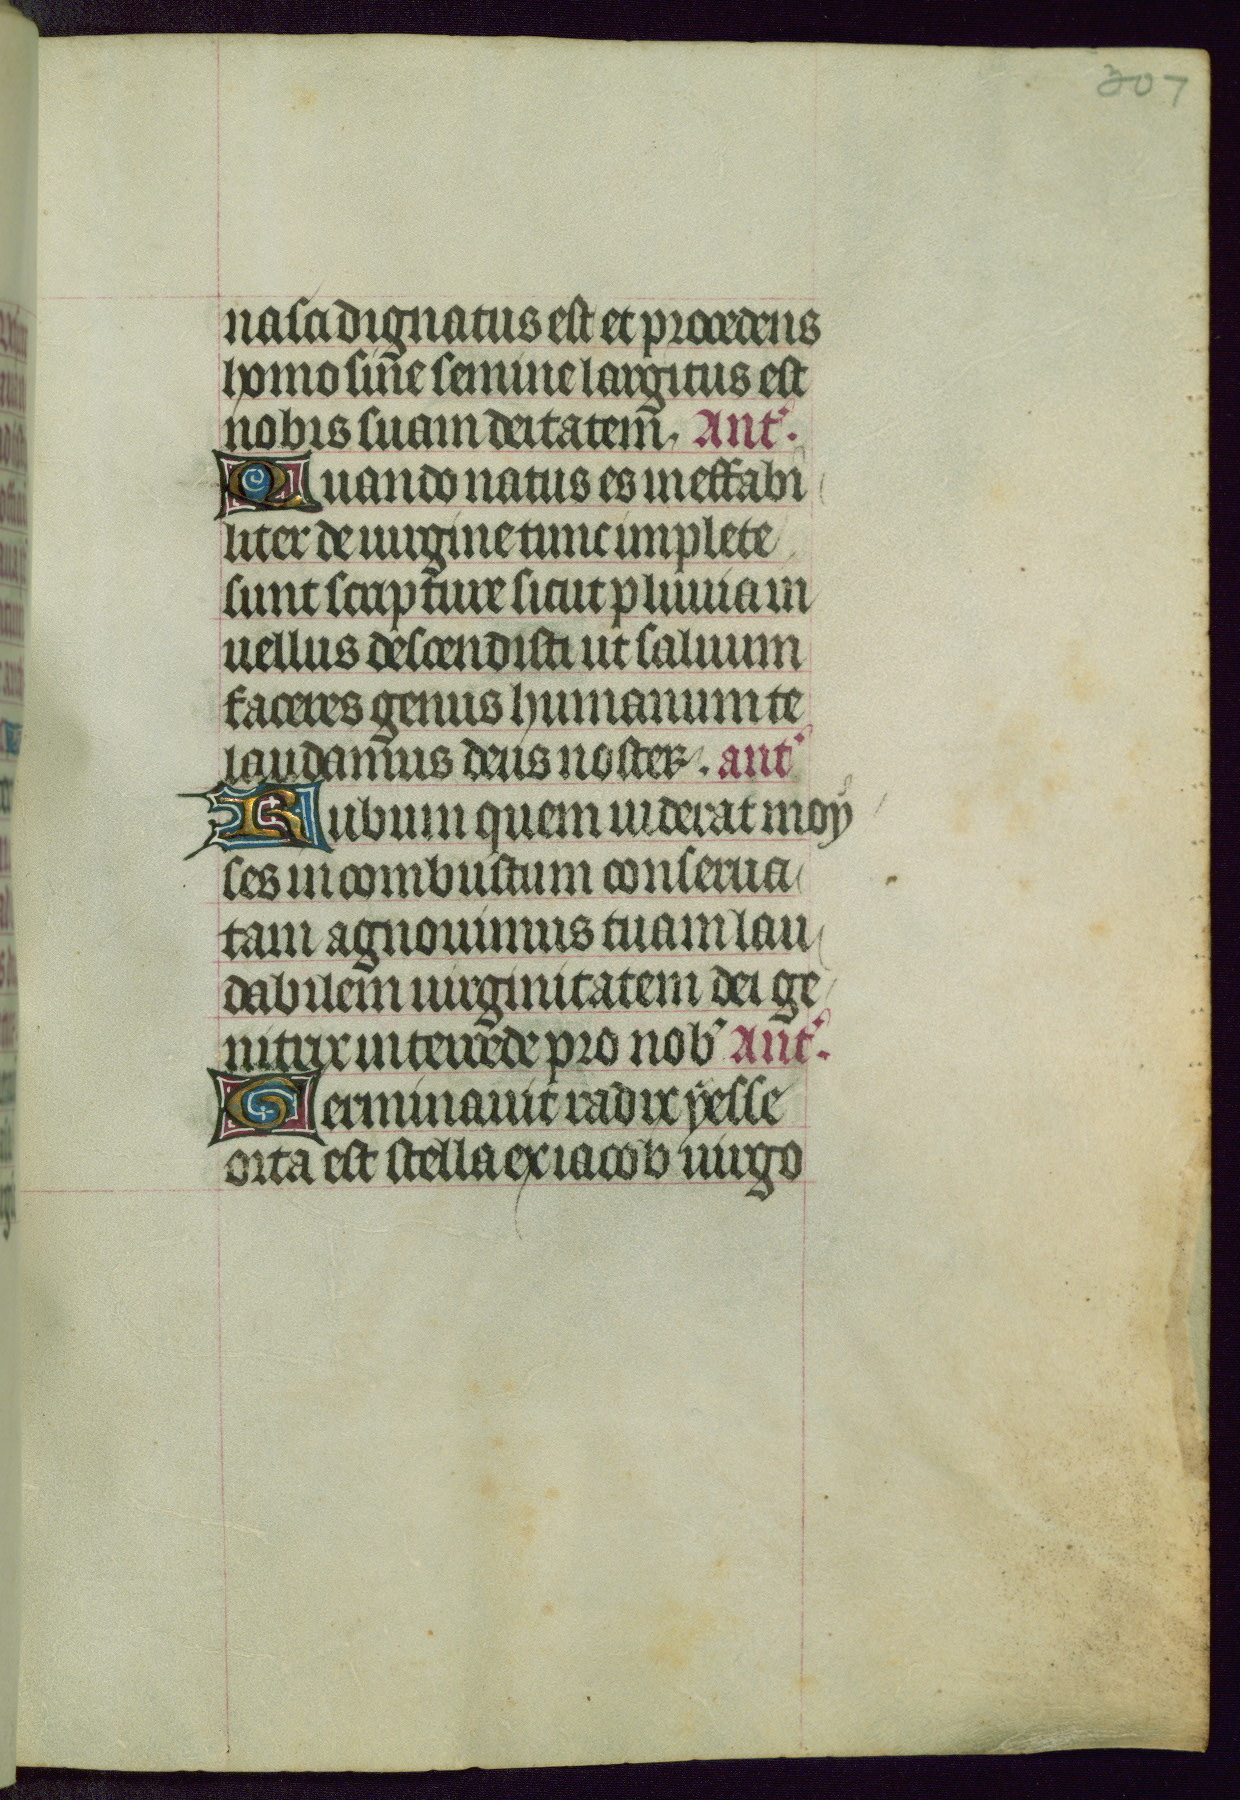 307
nasci dignatus est et procedens
homo sine semine largitus est
nobis suam deitatem. Ant.
Quando natus es ineffabi
liter de uirgine tunc implete
sunt scripture sicut pluuia in
uellus descendisti ut saluum
faceres genus humanum te
laudamus deus noster. ant
Rubum quem uiderat moy
ses incombustum conserua
tam agnouimus tuam lau
dabilem uirginitatem dei ge
nitrix intercede pro nob Ant.
Germinauit radix yesse
orta est stella ex iacob uirgo